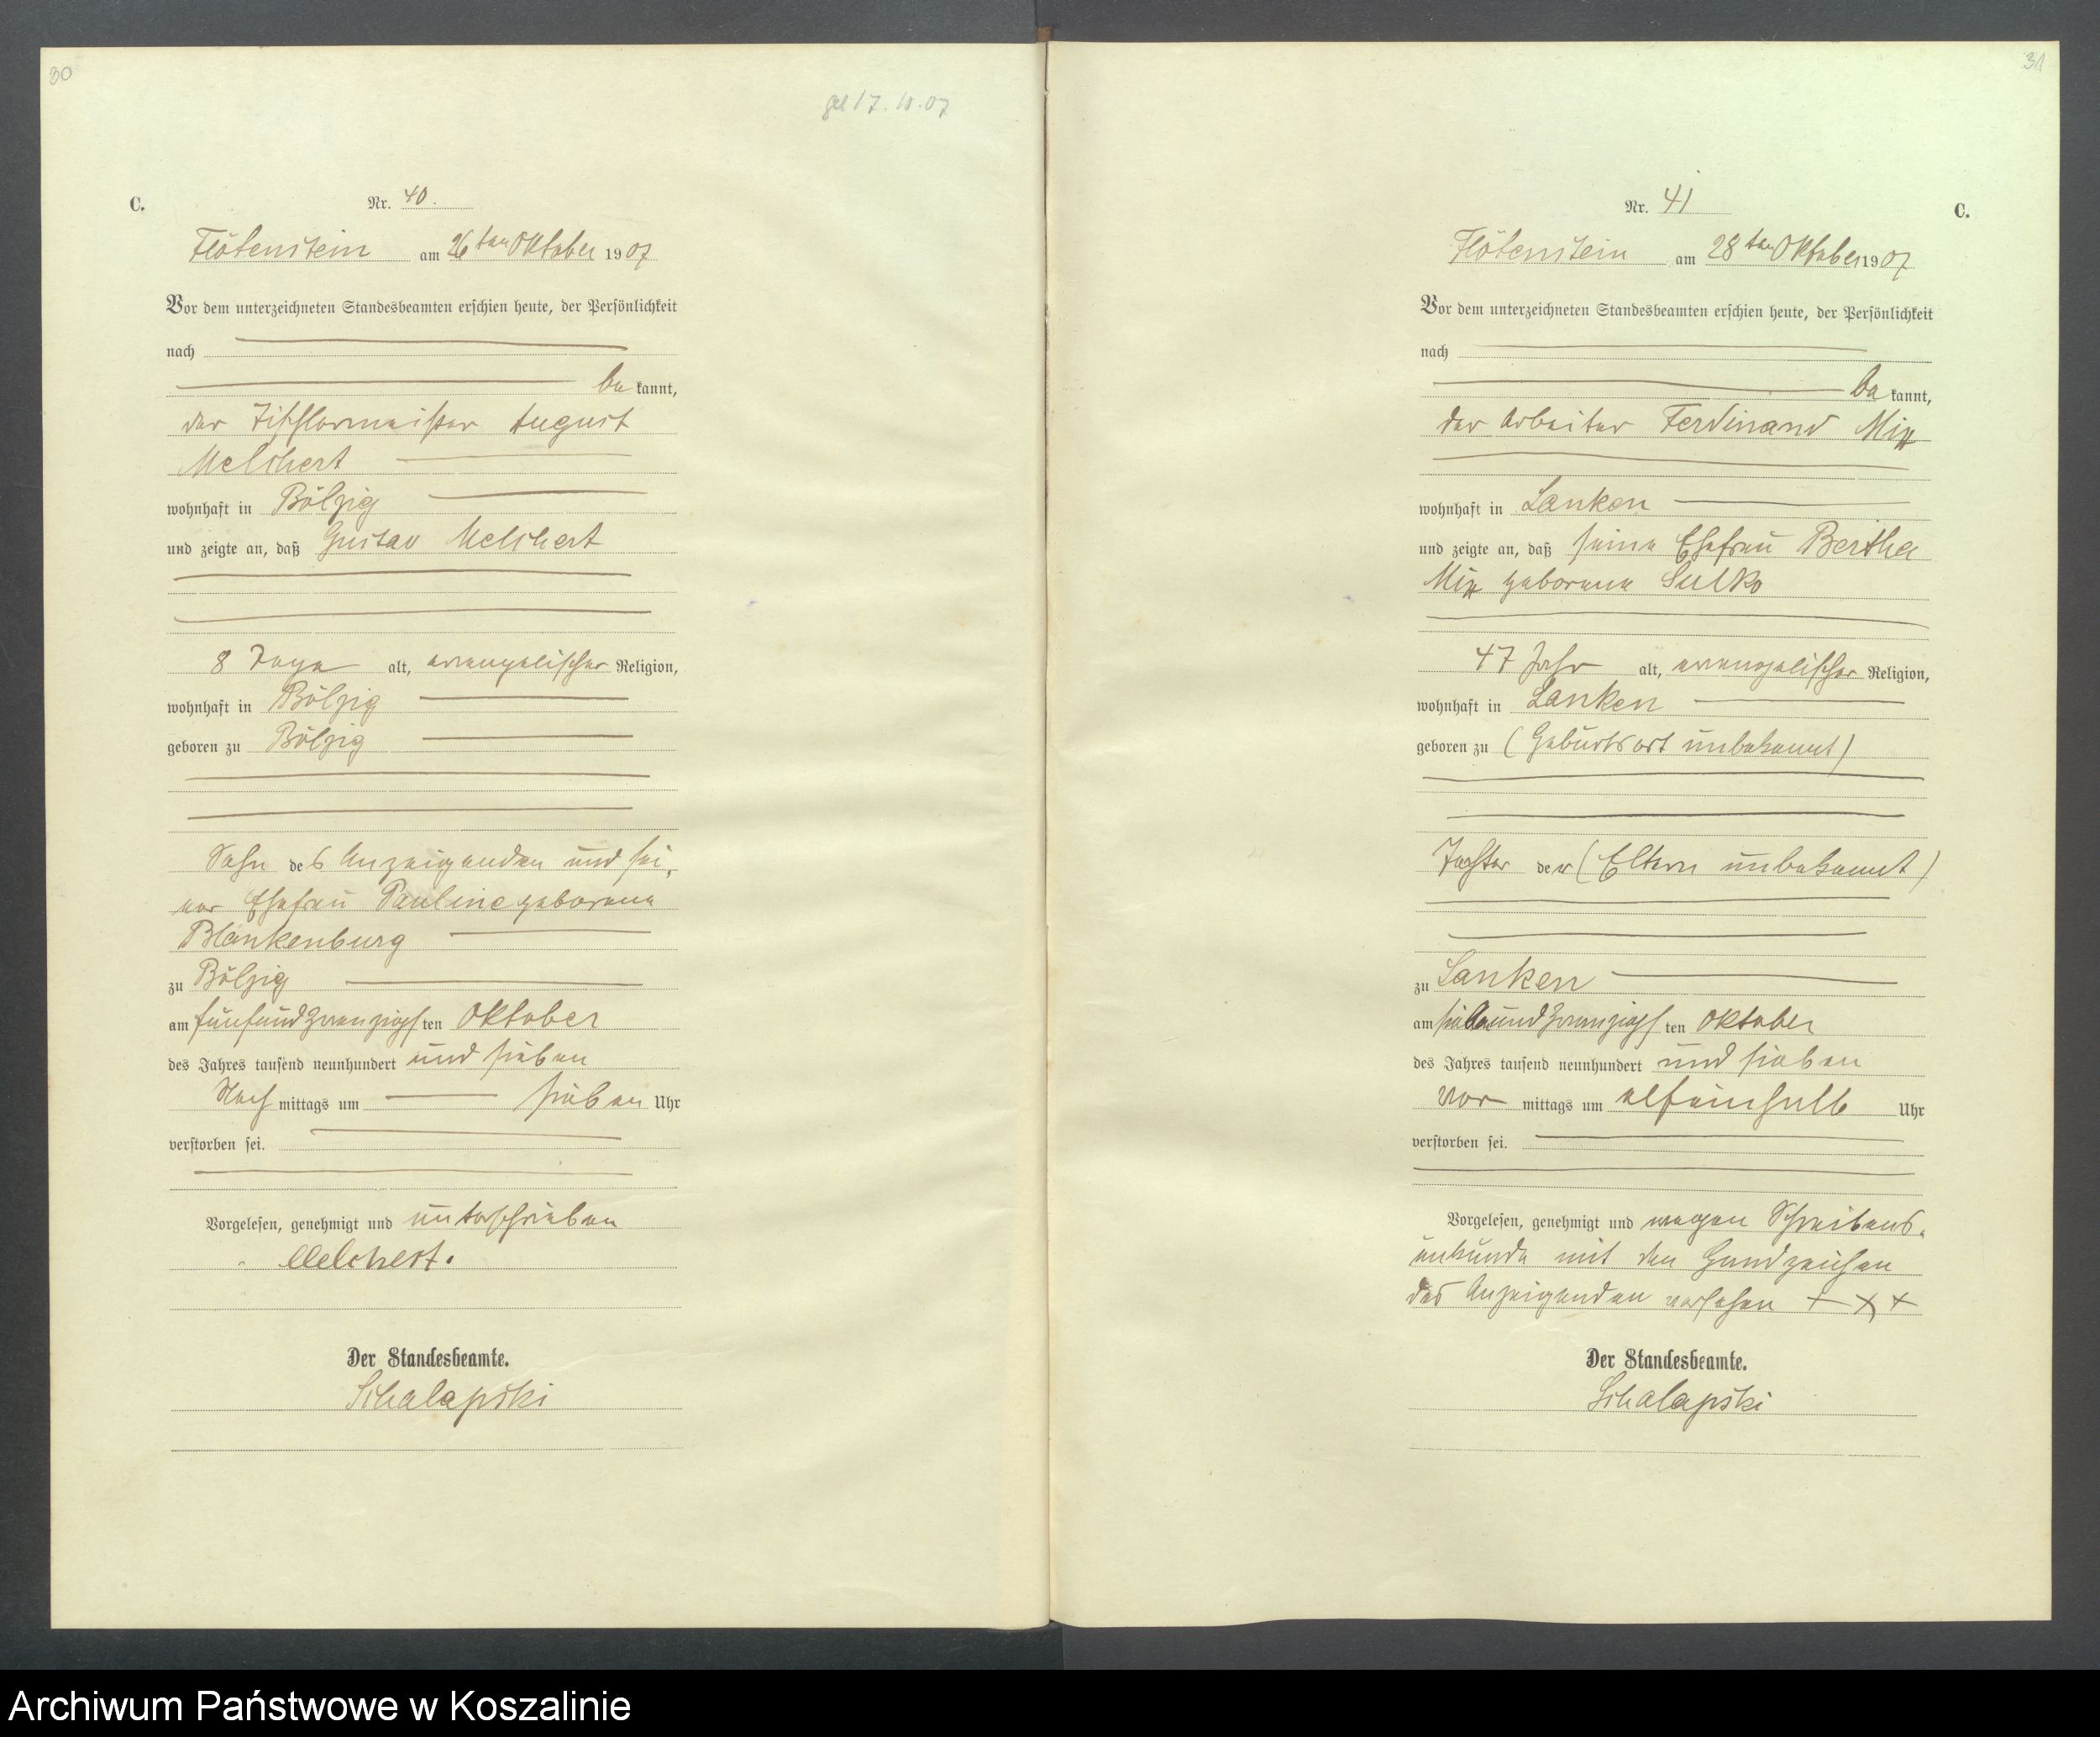 30
geb 17.10.07
C.
Nr. 40.
Flötenstein am 26ten Oktober 1907
Vor dem unterzeichneten Standesbeamten erschien heute, der Persönlichkeit
nach
be kannt,
der Tischlermeister August
Melchert
wohnhaft in Bölzig
und zeigte an, daß Gustav Melchert
8 Tage alt, evangelischer Religion,
wohnhaft in Bölzig
geboren zu Bölzig
Sohn des Anzeigenden und sei-
ner Ehefrau Pauline geborene
Blankenburg
zu Bölzig
am fünfundzwanzigsten Oktober
des Jahres tausend neunhundert und sieben
Nach mittags um sieben Uhr
verstorben sei.
Vorgelesen, genehmigt und unterschrieben
Melchert.
Der Standesbeamte.
Schalapski
31
Nr. 41
C.
Flötenstein am 28ten Oktober 1907
Vor dem unterzeichneten Standesbeamten erschien heute, der Persönlichkeit
nach
be kannt,
der Arbeiter Ferdinand Mix
wohnhaft in Lanken
und zeigte an, daß seine Ehefrau Bertha
Mix geborene Sulko
47 Jahr alt, evangelischer Religion,
wohnhaft in Lanken
geboren zu (Geburtsort unbekannt)
Tochter der (Eltern unbekannt)
zu Lanken
am siebenundzwanzigsten Oktober
des Jahres tausend neunhundert und sieben
Vor mittags um elfeinhalb Uhr
verstorben sei.
Vorgelesen, genehmigt und wegen Schreibens-
unkunde mit den Handzeichen
des Anzeigenden versehen + x +
Der Standesbeamte.
Schalapski
Archiwum Państwowe w Koszalinie